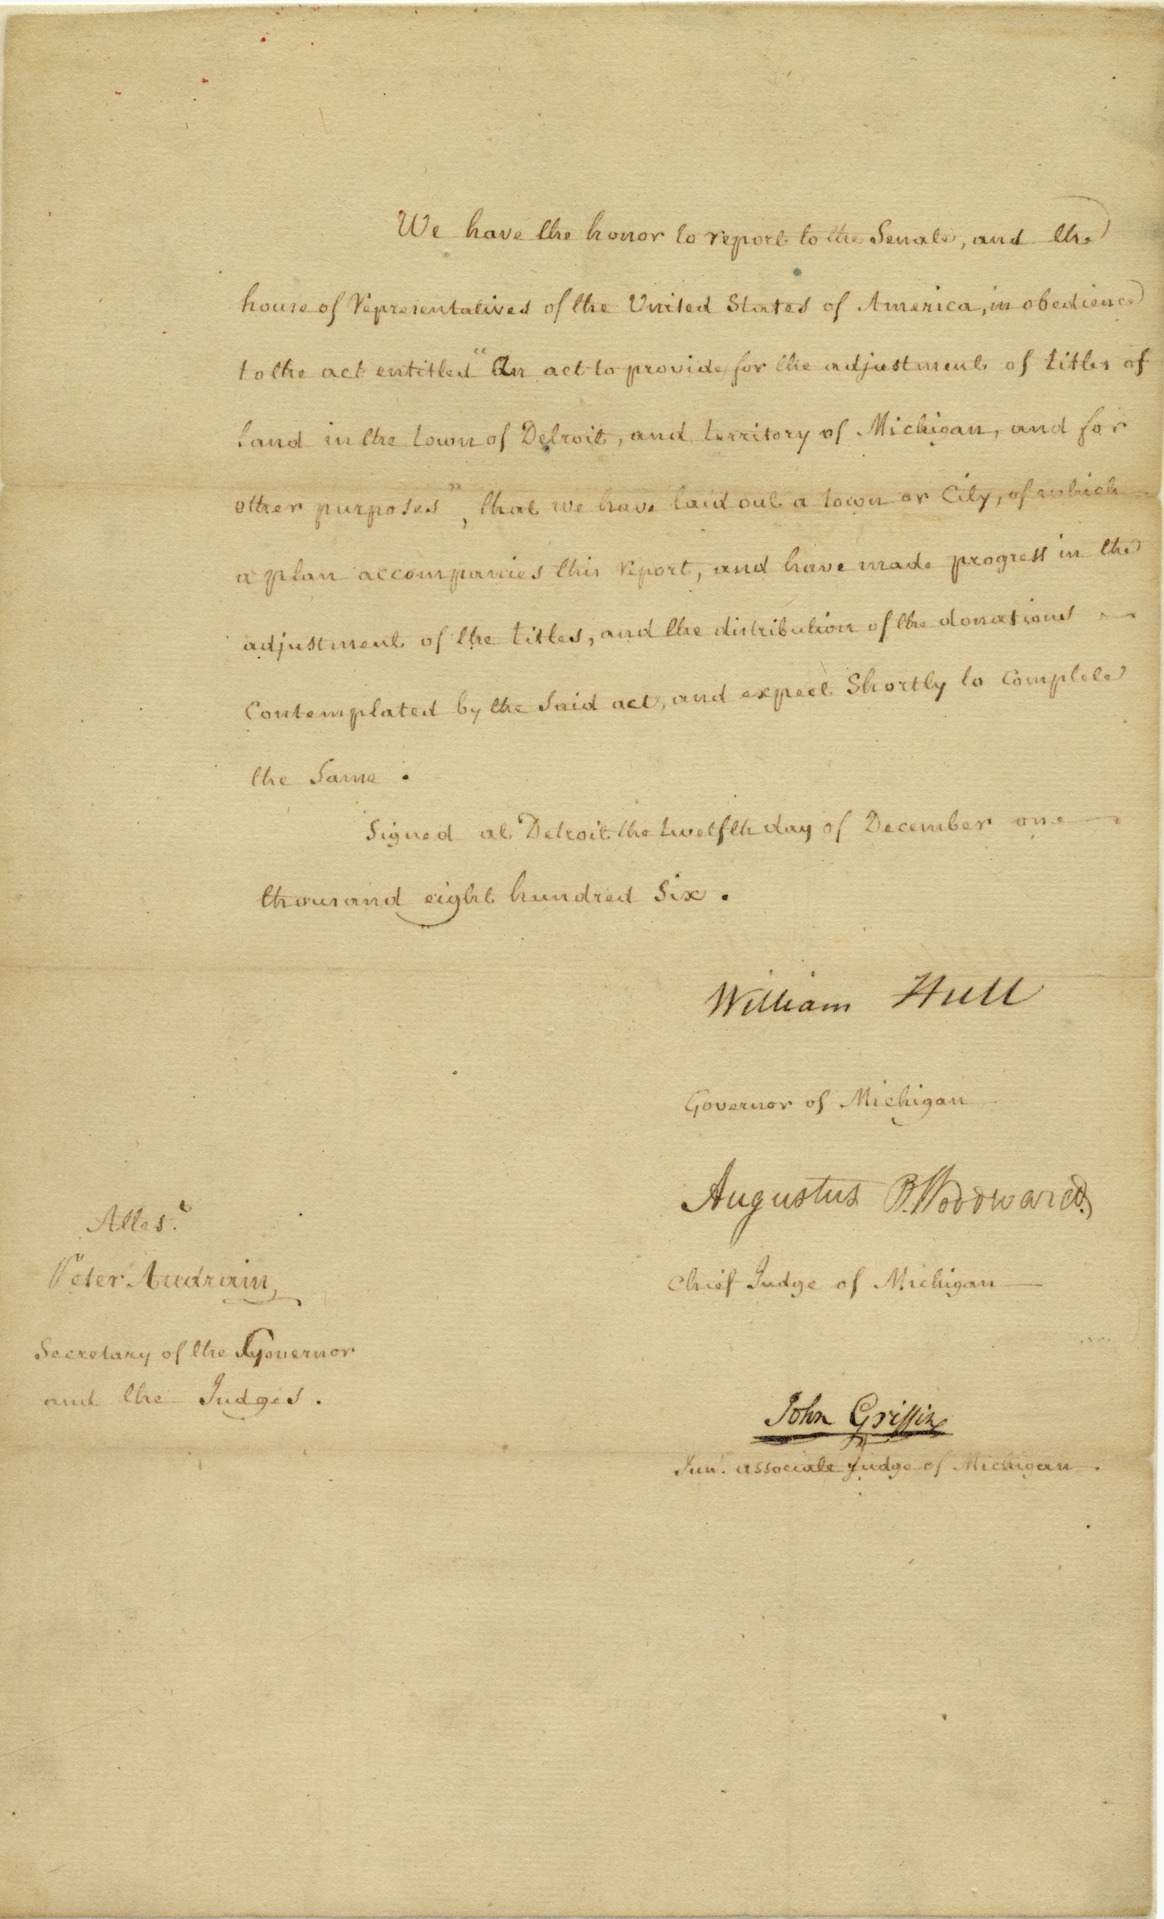 We have the honor to report to the Senate, and the
house of representatives of the United States of America, in obedience
to the act entitled "An act to provide for the adjustment of titles of
land in the town of Detroit, and territory of Michigan, and for
other purposes", that we have laid out a town or City, of which
a plan accompanies this report, and have made progress in the
adjustment of the titles, and the distribution of the donations
Contemplated by the Said act, and expect Shortly to Complete
the Same.
Signed at Detroit the twelfth day of December one
thousand eight hundred Six.
William Hull
Governor of Michigan
Augustus B. Woodward.
Chief Judge of Michigan
Attest
Peter Audrain,
Secretary of the Governor
and the Judges.
John Griffin
Junr. associate Judge of Michigan.